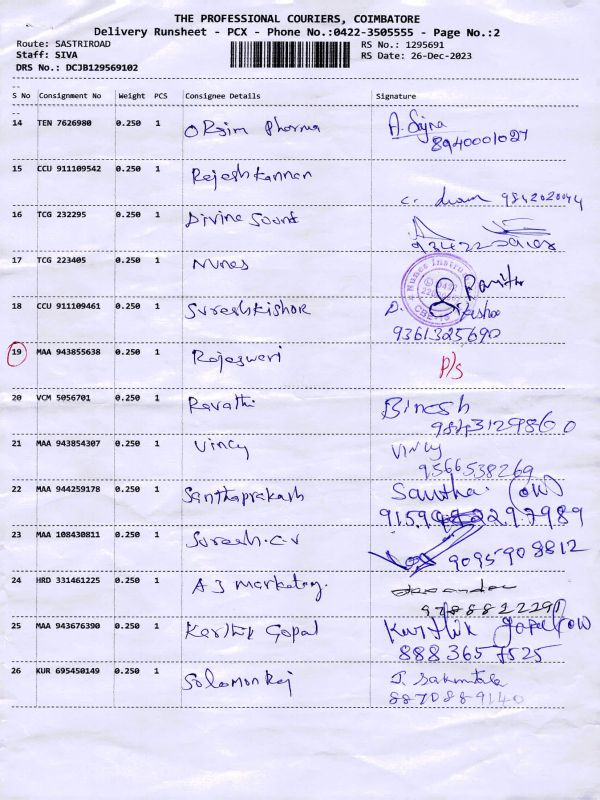 THE PROFESSIONAL COURIERS, COIMBATORE
Delivery Runsheet - PCX - Phone No.:0422-3505555 - Page No.:2
Route: SASTRIROAD RS No.: 1295691
Staff: SIVA RS Date: 26-Dec-2023
DRS No.: DCJB129569102
S No Consignment No Weight PCS Consignee Details Signature
14 TEN 7626980 0.250 1 Pharma A. Sajna
8940001027
15 CCU 911109542 0.250 1 Rajesh Kannan
9842020044
16 TCG 232295 0.250 1 Divine Sound
17 TCG 223405 0.250 1 Nunes
Nunes Instru
18 CCU 911109461 0.250 1 Sureshkishor
9361325690
19 MAA 943855638 0.250 1 Rajasweri P/s
20 VCM 5056701 0.250 1 Revathi Binesh
9843129860
21 MAA 943854307 0.250 1 Vincy Vincy
9566538269
22 MAA 944259178 0.250 1 Santhaprakash Santha (OW)
23 MAA 108430811 0.250 1 Suresh.C.V
9095908812
24 HRD 331461225 0.250 1 A J Marketing.
25 MAA 943676390 0.250 1 Karthik Gopal Karthik Gopal (OW)
8883657525
26 KUR 695450149 0.250 1 Solomon Raj
8870889140